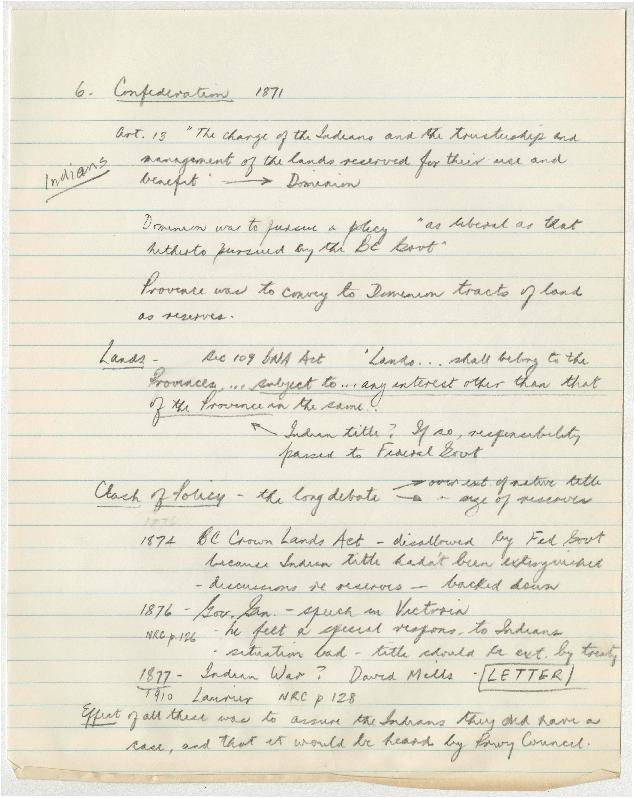 6. Confederation 1871
Art. 13 "The charge of the Indians and the trusteeship and
management of the lands reserved for their use and
Indians
benefit" → Dominion
Dominion was to pursue a policy "as liberal as that
hitherto pursued by the BC Govt"
Province was to convey to Dominion tracts of land
as reserves.
Lands - Sec 109 BNA Act "Lands... shall belong to the
Provinces, ... subject to ... any interest other than that
of the Province in the same..
Indian title? If so, responsibility
passed to Federal Govt
Clash of Policy - the long debate → over ext. of native title
→ " size of reserves
1874 BC Crown Lands Act - disallowed by Fed Govt
because Indian title hadn't been extinguished
- discussions re reserves - backed down
1876 - Gov. Gen. - speech in Victoria
NRC p.126 - he felt a special respons. to Indians
- situation bad - title should be ext. by treaty
1877 - Indian War? David Mills - LETTER
1910 Laurier NRC p 128
Effect of all these was to assure the Indians they did have a
case, and that it would be heard by Privy Council.